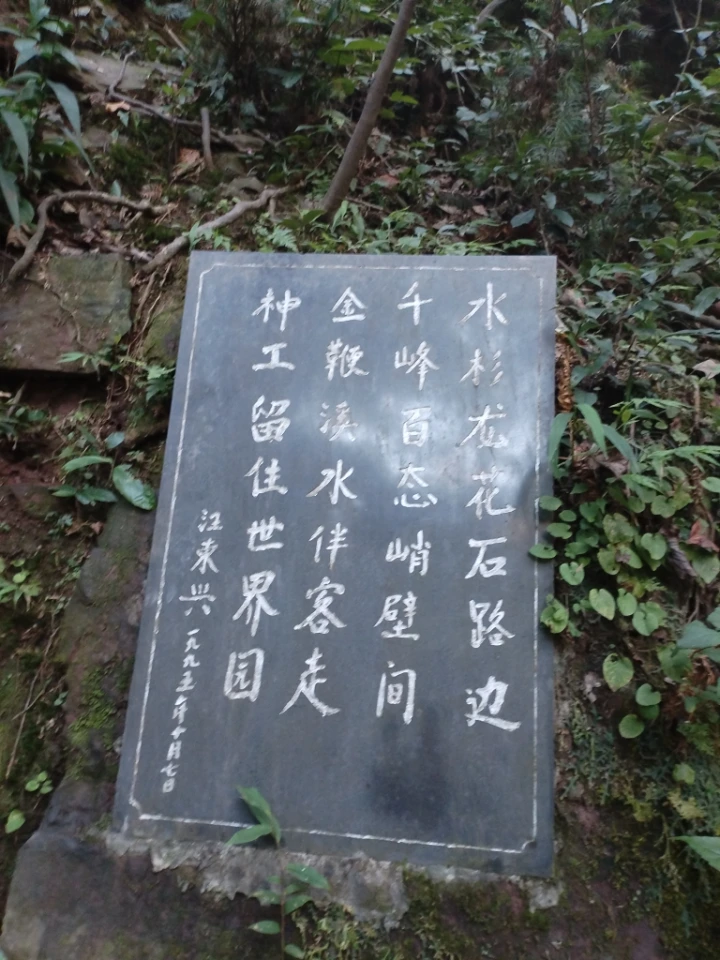 水杉龙花石路边
千峰百态峭壁间
金鞭溪水伴客走
神工留住世界园
汪东兴 一九九五年十月七日